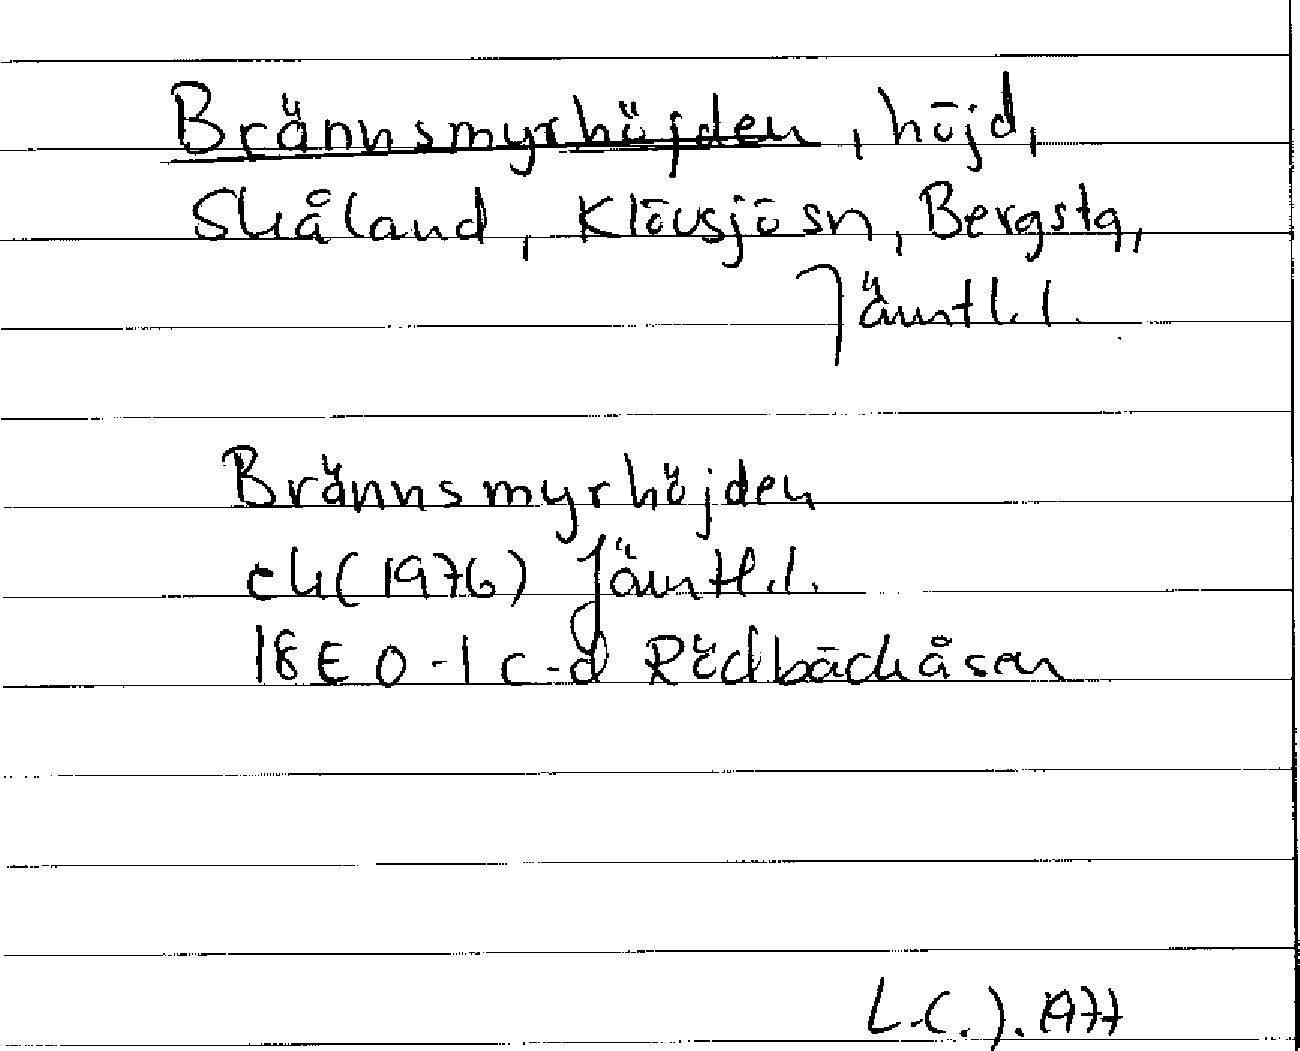 Brännsmyrhöjden, höjd,
Skåland, Klövsjösn, Bergstg,
Jämtl. l.
Brännsmyrhöjden
ek (1976) Jämtl. l.
18E 0-1 c-d Rödbäckåsen
L.C.J. 1977